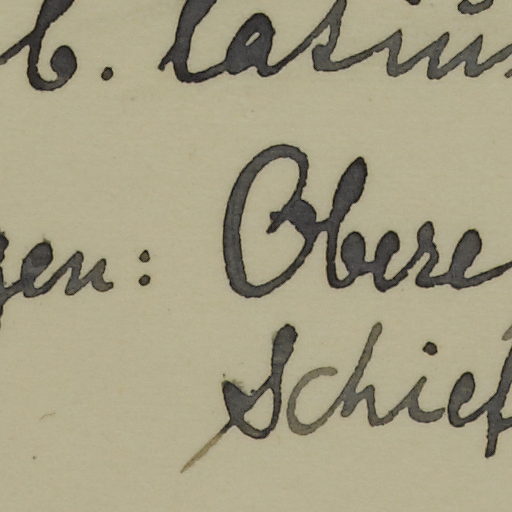 b. Casius
gen: Obere
Schief